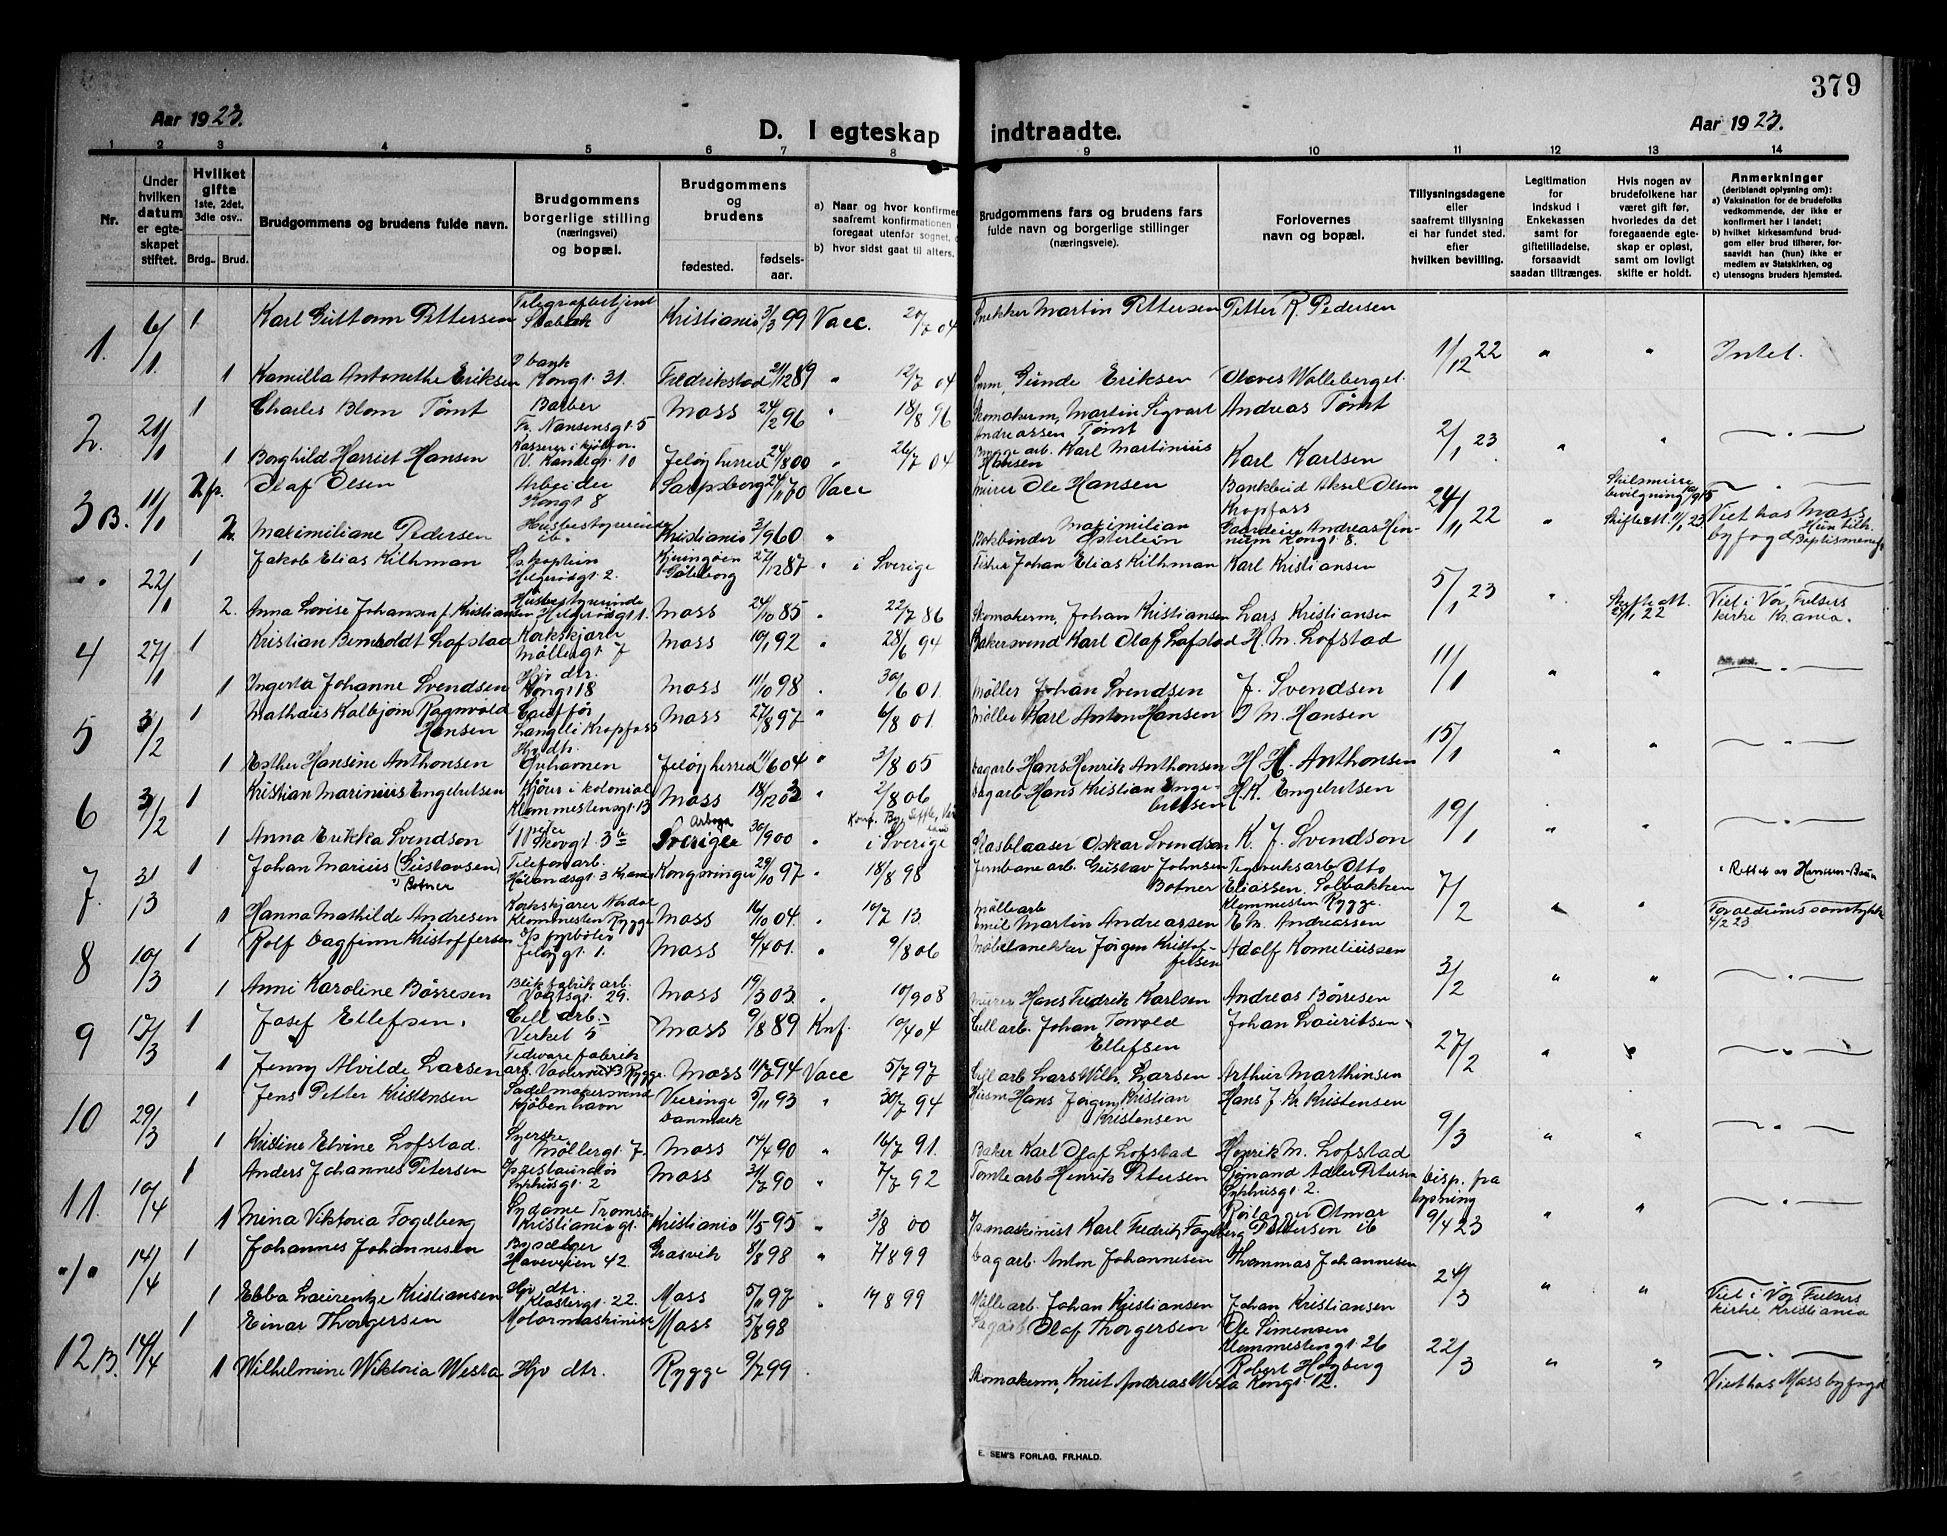 379
Aar 1923.
D. I egteskap indtraadte.
Aar 1923.
1 2 3 4 5 6 7 8 9 10 11 12 13 14
Nr.
Under hvilken datum er egteskapet stiftet.
Hvilket gifte 1ste, 2det, 3die osv..
Brdg. Brud.
Brudgommens og brudens fulde navn.
Brudgommens borgerlige stilling (næringsvei) og bopæl.
Brudgommens og brudens
fødested. fødselsaar.
a) Naar og hvor konfirmer saafremt konfirmationen foregaat utenfor sognet,
b) hvor sidst gaat til alters.
Brudgommens fars og brudens fars fulde navn og borgerlige stillinger (næringsveie).
Forlovernes navn og bopæl.
Tillysningsdagene eller saafremt tillysning ei har fundet sted, efter hvilken bevilling.
Legitimation for indskud i Enkekassen samt for giftetilladelse, forsaavidt saadan tiltrænges.
Hvis nogen av brudefolkene har været gift før, hvorledes da det foregaaende egteskap er opløst, samt om lovligt skifte er holdt.
Anmerkninger (deriblandt oplysning om): a) Vaksination for de brudefolks vedkommende, der ikke er konfirmert her i landet; b) hvilket kirkesamfund brudgom eller brud tilhører, forsaavidt han (hun) ikke er medlem av Statskirken, og c) utensogns bruders hjemsted.
1. 6/1 1 Karl Guttorm Pettersen Telegrafbetjent Stabæk Kristiania 3/3 99 Vacc. 20/7 04 Snekker Martin Pettersen Petter R. Pedersen
11/12 22 " " Intet.
1 Kamilla Antonethe Eriksen Kongt. 31. Fredrikstad 21/12 89 " 12/7 04 Gunde Eriksen
2. 21/1 1 Charles Blom Tømt Barber Fr. Nansensgt. 5 Moss 24/2 96 " 18/8 96 Skomakerm, Martin Sigvart Andreassen Tømt Andreas Tømt
2/1 23 " "
1 Borghild Harriet Hansen Jeløy herred 24/8 00 " 26/7 04 Karl Martinius Hansen Karl Karlsen
3 B. 11/1 Olaf Olsen Arbeider Kongt 8 Sarpsborg 24/11 70 Vacc Murer Ole Hansen Bankbud Aksel Olsen Kropfoss
24/11 22 " Viet hos Moss byfogd
Maximiliane Pedersen Husbestyrerinde ib. Kristiania 3/9 60 " Bokbinder Maximilian Østerlein
" 22/1 1 Jakob Elias Kilhman Helgerødgt. 2. Göteborg 27/12 87 " i Sverige Fisker Johan Elias Kilhman Karl Kristiansen
5/1 23 " Viet i Vor Frelsers kirke Kr.ania.
2. Anna Lovise Johansen f. Kristiansen Husbestyrerinde Helgerødgt 1. Moss 24/10 85 " 22/7 86 Skomakerm, Johan Kristiansen Lars Kristiansen
4 27/1 1 Kristian Bernholdt Lofstad Korkskjærer Møllergt 7 Moss 10/1 92 " 28/6 94 Bakersvend Karl Olaf Lofstad H. M. Lofstad
11/1 " "
1 Ingerta Johanne Svendsen Hjv dtr. Kongt 18 Moss 11/10 98 " 30/6 01. Møller Johan Svendsen J. Svendsen
5 3/2 1 Mathæus Kolbjørn Ragnvald Hansen Kropfoss Moss 27/8 97 " 6/8 01 Møller Karl Anton Hansen J M. Hansen
15/1 " "
1 Esther Hansine Anthonsen Hjv dtr. Jeløy herred 11/6 04 " 3/8 05 Dagarb Hans Henrik Anthonsen H. H. Anthonsen
6 3/2 1 Kristian Marinius Engebretsen Kjører i kolonial Klommestensgt. 13 Moss 18/12 03 " 2/8 06 Dagarb Hans Kristian Engebretsen H. K. Engebretsen
19/1 " "
1 Anna Erikka Svendson Skovgt. 3b Arboga Sverige 30/9 00 i Sverige Glasblaaser Oskar Svendson K. J. Svendson
7. 31/3 1 Johan Marius (Gustavsen) Botner Telefonarb. Kongsvinger 29/10 97 " 18/8 98 Jernbane arb. Gustav Johnsen Botner Teglverksarb Otto Eliassen, Solbakken
7/2 " "
1 Hanna Mathilde Andresen Klommesten Rygge Moss 16/10 04. " 10/7 13. Møllearb Emil Martin Andreassen E M. Andreassen
8 10/3 1 Rolf Dagfinn Kristoffersen Jeløygt. 1. Moss 4/4 01. " 9/8 06 Møbelsnekker Jørgen Kristoffersen Adolf Korneliussen
3/2 " "
1 Anni Karoline Børresen Blikfabrik arb. Vogtsgt. 29. Moss 19/3 03 " 10/9 08 Murer Hans Fredrik Karlsen Andreas Børresen
9 17/3 1 Josef Ellefsen. Cell arb. Verket 5 Moss 9/8 89 Knf. 10/4 04 Cell arb. Johan Torvald Ellefsen Johan Lauritsen
27/2 " "
1 Jenny Alvilde Larsen Trævarefabrik Moss 11/7 94 Vacc 5/7 97 Cell arb Lars Wilh. Larsen Arthur Marthinsen
10 29/3 1 Jens Petter Kristensen Sadelmakersvend Kjøbenhavn Veeringe Danmark 5/11 93 " 30/7 94 Husm Hans Jørgen Kristian Kristensen Hans J. Kr Kristensen
9/3 " "
1 Kristine Elvine Lofstad. Syerske Møllergt 7. Moss 14/4 90 " 16/7 91. Baker Karl Olaf Lofstad Henrik M. Lofstad
11. 10/4 1 Anders Johannes Petersen Moss 31/7 90 " 7/7 92 Tomtearb Henrik Petersen
Disp. fra lysning 9/4 23 " "
1 Mina Viktoria Fogelberg Sydame Tromsø Kristianiagt. Kristiania 11/5 95 " 3/8 00 Karl Fredrik Fogelberg
14/4 1 Johannes Johannesen Bysælger Haveveien 42. Græsvik 8/8 98 " 7/8 99 Dagarb. Anton Johannesen Thommas Johannesen
24/3 " " Viet i Vor Frelsers kirke Kristiania
1 Ebba Laurentze Kristiansen Hjv, dtr. Klostergt. 22. Moss 5/11 97 " 14/8 99 Møllearb. Johan Kristiansen Johan Kristiansen
12 B. 14/4 1 Einar Thorgersen Motormaskinist Moss 5/8 98 Olaf Thorgersen Ole Simensen Klommestengt 26
22/3 " " Viet hos Moss byfogd
1 Wilhelmine Wiktoria Westa Hjv dtr. Rygge 9/7 99 Skomakerm, Knut Andreas Westa Robert Høyberg Kongt. 12.
E. SEM'S FORLAG, FR.HALD.